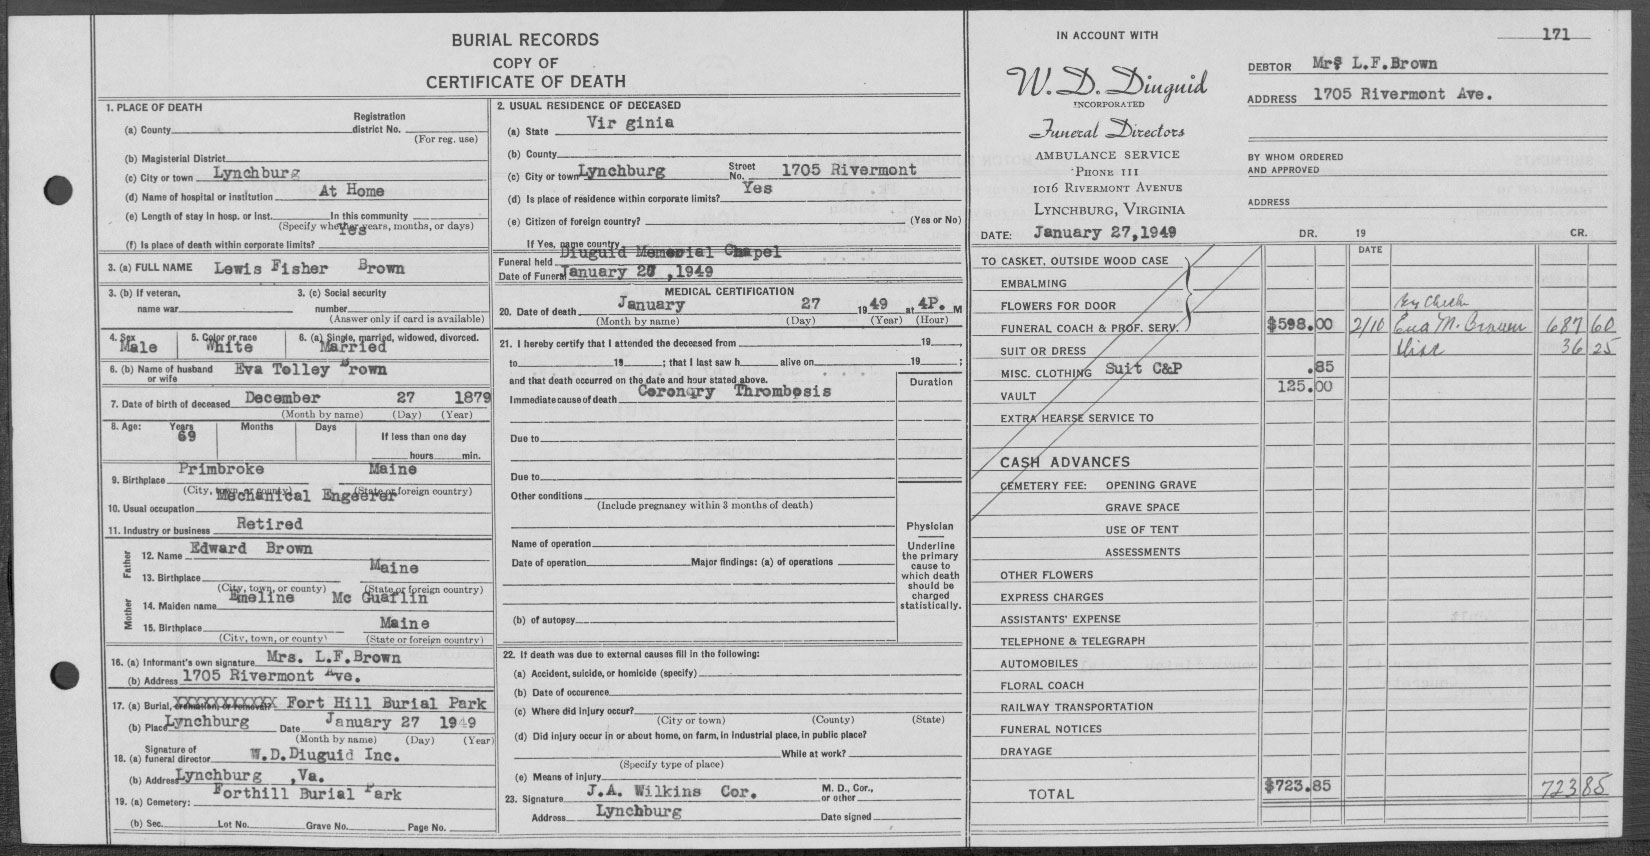 BURIAL RECORDS
COPY OF
CERTIFICATE OF DEATH
1. PLACE OF DEATH
Registration
(a) County district No.
(For reg. use)
(b) Magisterial District
(c) City or town Lynchburg
(d) Name of hospital or institution At Home
(e) Length of stay in hosp. or inst. In this community
(Specify whether years, months, or days)
(f) Is place of death within corporate limits? Yes
3. (a) FULL NAME Lewis Fisher Brown
3. (b) If veteran, 3. (c) Social security
name war number
(Answer only if card is available)
4. Sex 5. Color or race 6. (a) Single, married, widowed, divorced.
Male White Married
6. (b) Name of husband Eva Tolley Brown
or wife
7. Date of birth of deceased December 27 1879
(Month by name) (Day) (Year)
8. Age: Years Months Days
69 If less than one day
hours min.
Primbroke Maine
9. Birthplace
(City, town, or county) (State or foreign country)
Mechanical Engeerer
10. Usual occupation
11. Industry or business Retired
Father
12. Name Edward Brown
13. Birthplace Maine
(City, town, or county) (State or foreign country)
Mother
14. Maiden name Emeline Mc Guaflin
15. Birthplace Maine
(City, town, or county) (State or foreign country)
16. (a) Informant's own signature Mrs. L.F.Brown
(b) Address 1705 Rivermont Ave.
17. (a) Burial, cremation, or removal? XXXXXXXXXXX Fort Hill Burial Park
(b) Place Lynchburg Date January 27 1949
(Month by name) (Day) (Year)
Signature of
18. (a) funeral director W.D.Diuguid Inc.
(b) Address Lynchburg ,Va.
19. (a) Cemetery: Forthill Burial Park
(b) Sec. Lot No. Grave No. Page No.
2. USUAL RESIDENCE OF DECEASED
(a) State Vir ginia
(b) County
(c) City or town Lynchburg Street No. 1705 Rivermont
(d) Is place of residence within corporate limits? Yes
(e) Citizen of foreign country? (Yes or No)
If Yes, name country
Funeral held Diuguid Memorial Chapel
Date of Funeral January 2 ,1949
MEDICAL CERTIFICATION
20. Date of death January 27 1949 at 4P. M
(Month by name) (Day) (Year) (Hour)
21. I hereby certify that I attended the deceased from 19 ,
to 19 ; that I last saw h alive on 19 ;
and that death occurred on the date and hour stated above. Duration
Immediate cause of death Coronary Thrombosis
Due to
Due to
Other conditions
(Include pregnancy within 3 months of death)
Physician
Underline
the primary
cause to
which death
should be
charged
statistically.
Name of operation
Date of operation Major findings: (a) of operations
(b) of autopsy
22. If death was due to external causes fill in the following:
(a) Accident, suicide, or homicide (specify)
(b) Date of occurence
(c) Where did injury occur?
(City or town) (County) (State)
(d) Did injury occur in or about home, on farm, in industrial place, in public place?
While at work?
(Specify type of place)
(e) Means of injury
23. Signature J.A. Wilkins Cor. M. D., Cor., or other
Address Lynchburg Date signed
IN ACCOUNT WITH
W. D. Diuguid
INCORPORATED
Funeral Directors
AMBULANCE SERVICE
PHONE 111
1016 RIVERMONT AVENUE
LYNCHBURG, VIRGINIA
DATE: January 27,1949
171
DEBTOR Mrs L.F.Brown
ADDRESS 1705 Rivermont Ave.
BY WHOM ORDERED
AND APPROVED
ADDRESS
DR. 19 CR.
DATE
TO CASKET, OUTSIDE WOOD CASE
EMBALMING
FLOWERS FOR DOOR By Check
FUNERAL COACH & PROF. SERV. $598.00 2/10 Eva M. Brown 687 60
SUIT OR DRESS Disc 36 25
MISC. CLOTHING Suit C&P .85
VAULT 125.00
EXTRA HEARSE SERVICE TO
CASH ADVANCES
CEMETERY FEE: OPENING GRAVE
GRAVE SPACE
USE OF TENT
ASSESSMENTS
OTHER FLOWERS
EXPRESS CHARGES
ASSISTANTS' EXPENSE
TELEPHONE & TELEGRAPH
AUTOMOBILES
FLORAL COACH
RAILWAY TRANSPORTATION
FUNERAL NOTICES
DRAYAGE
TOTAL $723.85 723 85